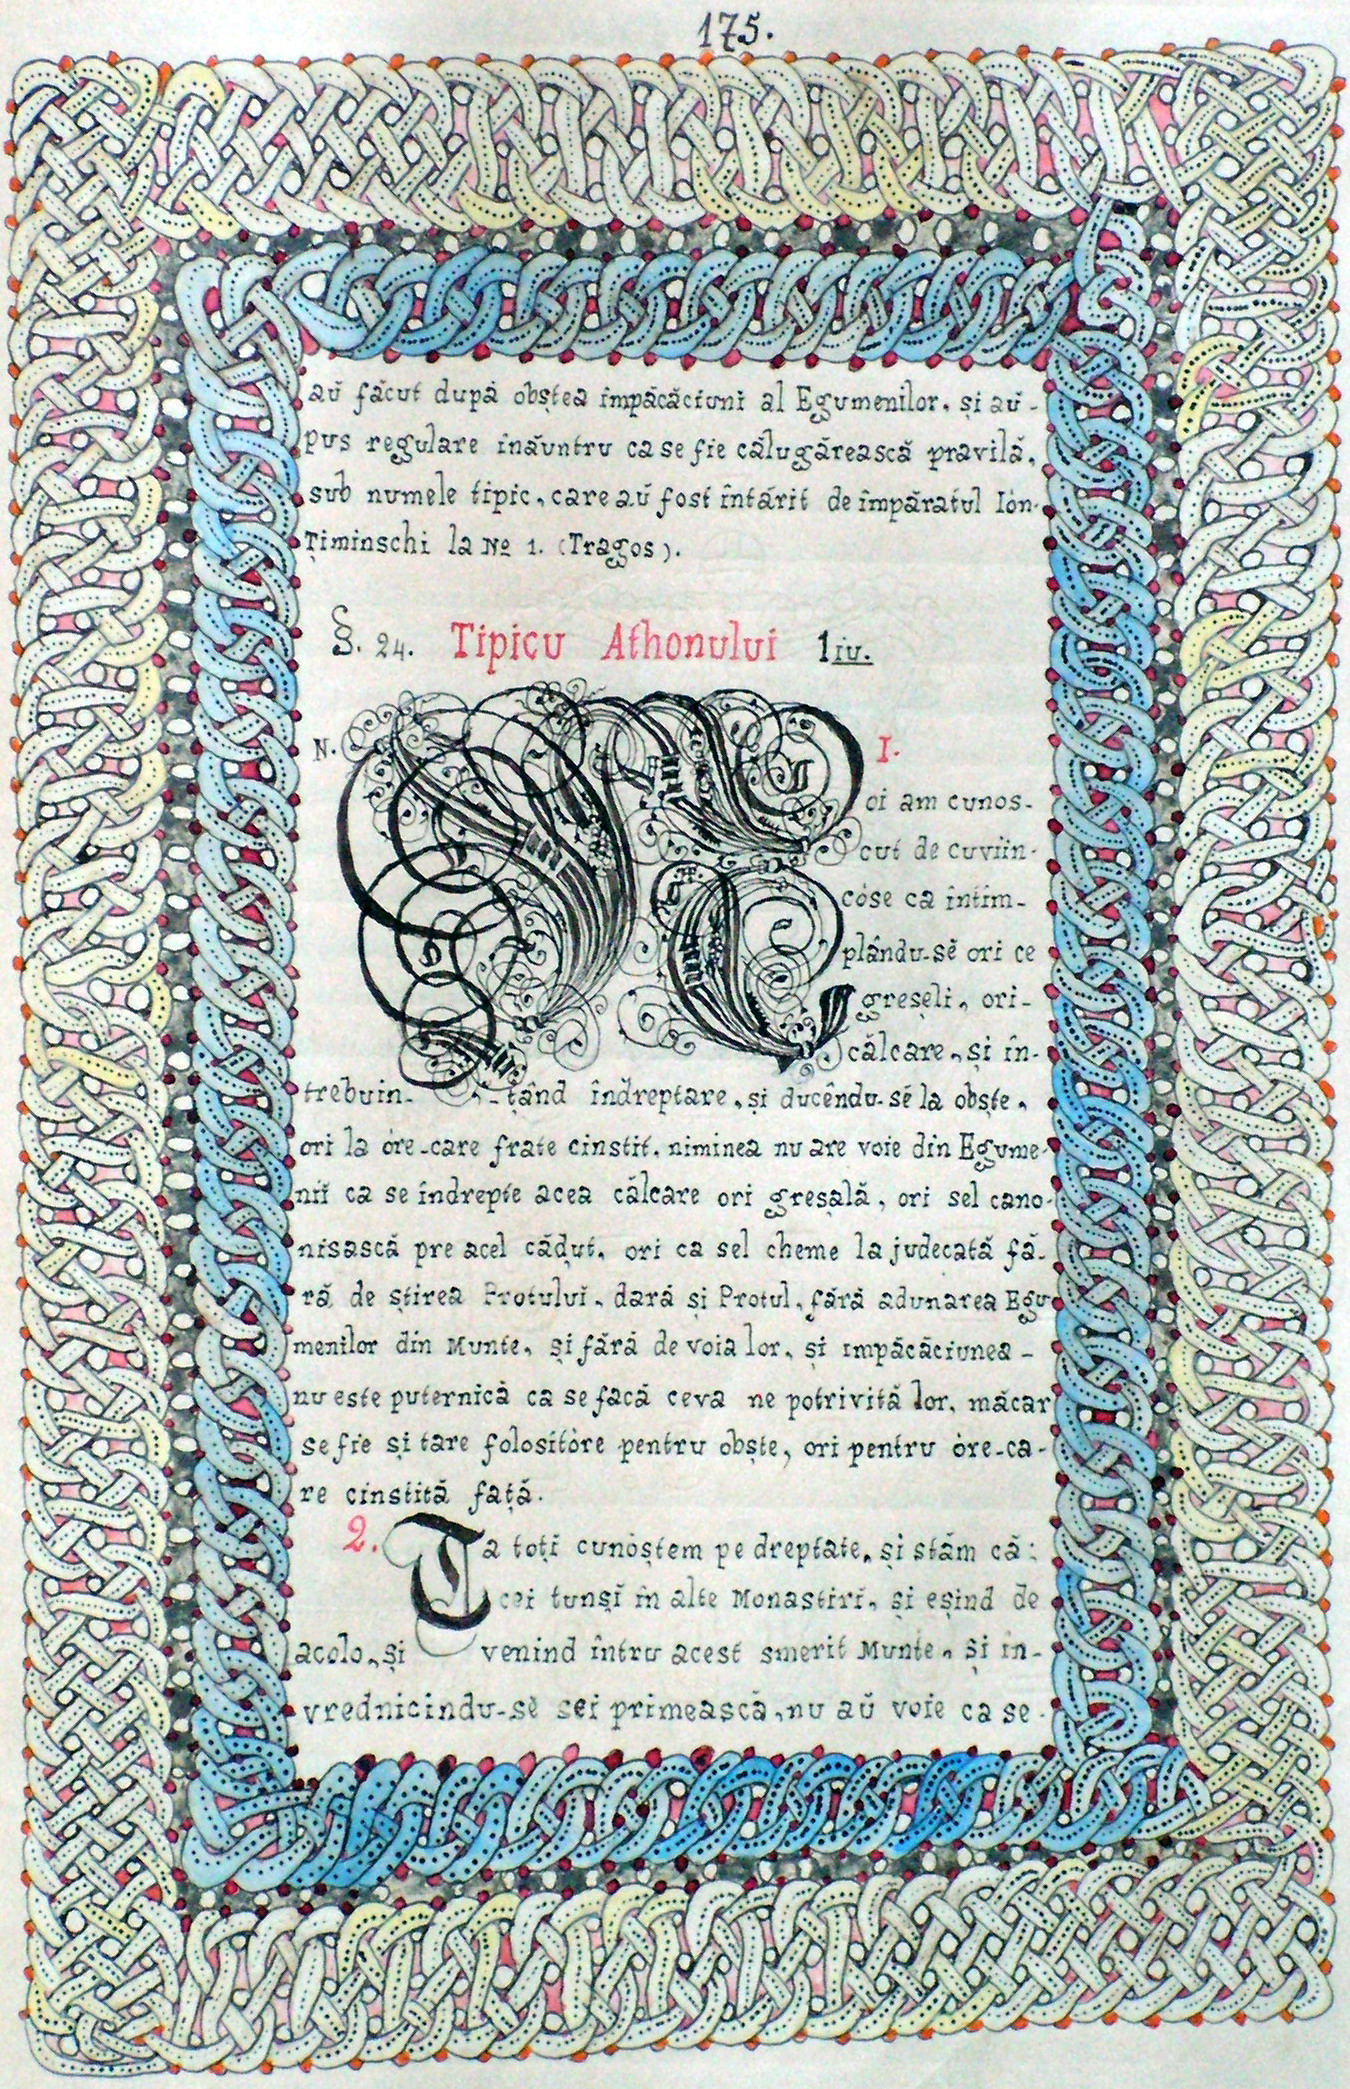 175.
aŭ făcut după obștea împăcăciuni al Egumenilor, și aŭ-
pus regulare înăuntru ca se fie călugărească pravilă,
sub numele tipic, care aŭ fost întărit de împăratul Ión-
Țiminschi la No 1. (Tragos).
§. 24. Tipicu Athonului 1iu.
N. I.
oi am cunos-
cut de cuviin-
cóse ca întîm-
plându-sĕ ori ce
greșeli, ori-
călcare, și în-
trebuin- -țând îndreptare, și ducêndu-sĕ la obște,
ori la óre-care frate cinstit, niminea nu are voie din Egume-
nii ca se îndrepte acea călcare ori greșală, ori sel cano-
nisască pre acel cădut, ori ca sel cheme la judecată fă-
ră de știrea Protuluĭ, dară și Protul, fără adunarea Egu-
menilor din Munte, și fără de voia lor, și împăcăciunea -
nu este puternică ca se facă ceva ne potrivită lor, măcar
se fie și tare folositóre pentru obște, ori pentru óre-ca-
re cinstită față.
2. Ta toți cunoștem pe dreptate, și stăm că:
cei tunși în alte Monastiri, și eșind de
acolo, și venind întru acest smerit Munte, și în-
vrednicindu-sĕ sei primească, nu aŭ voie ca se-